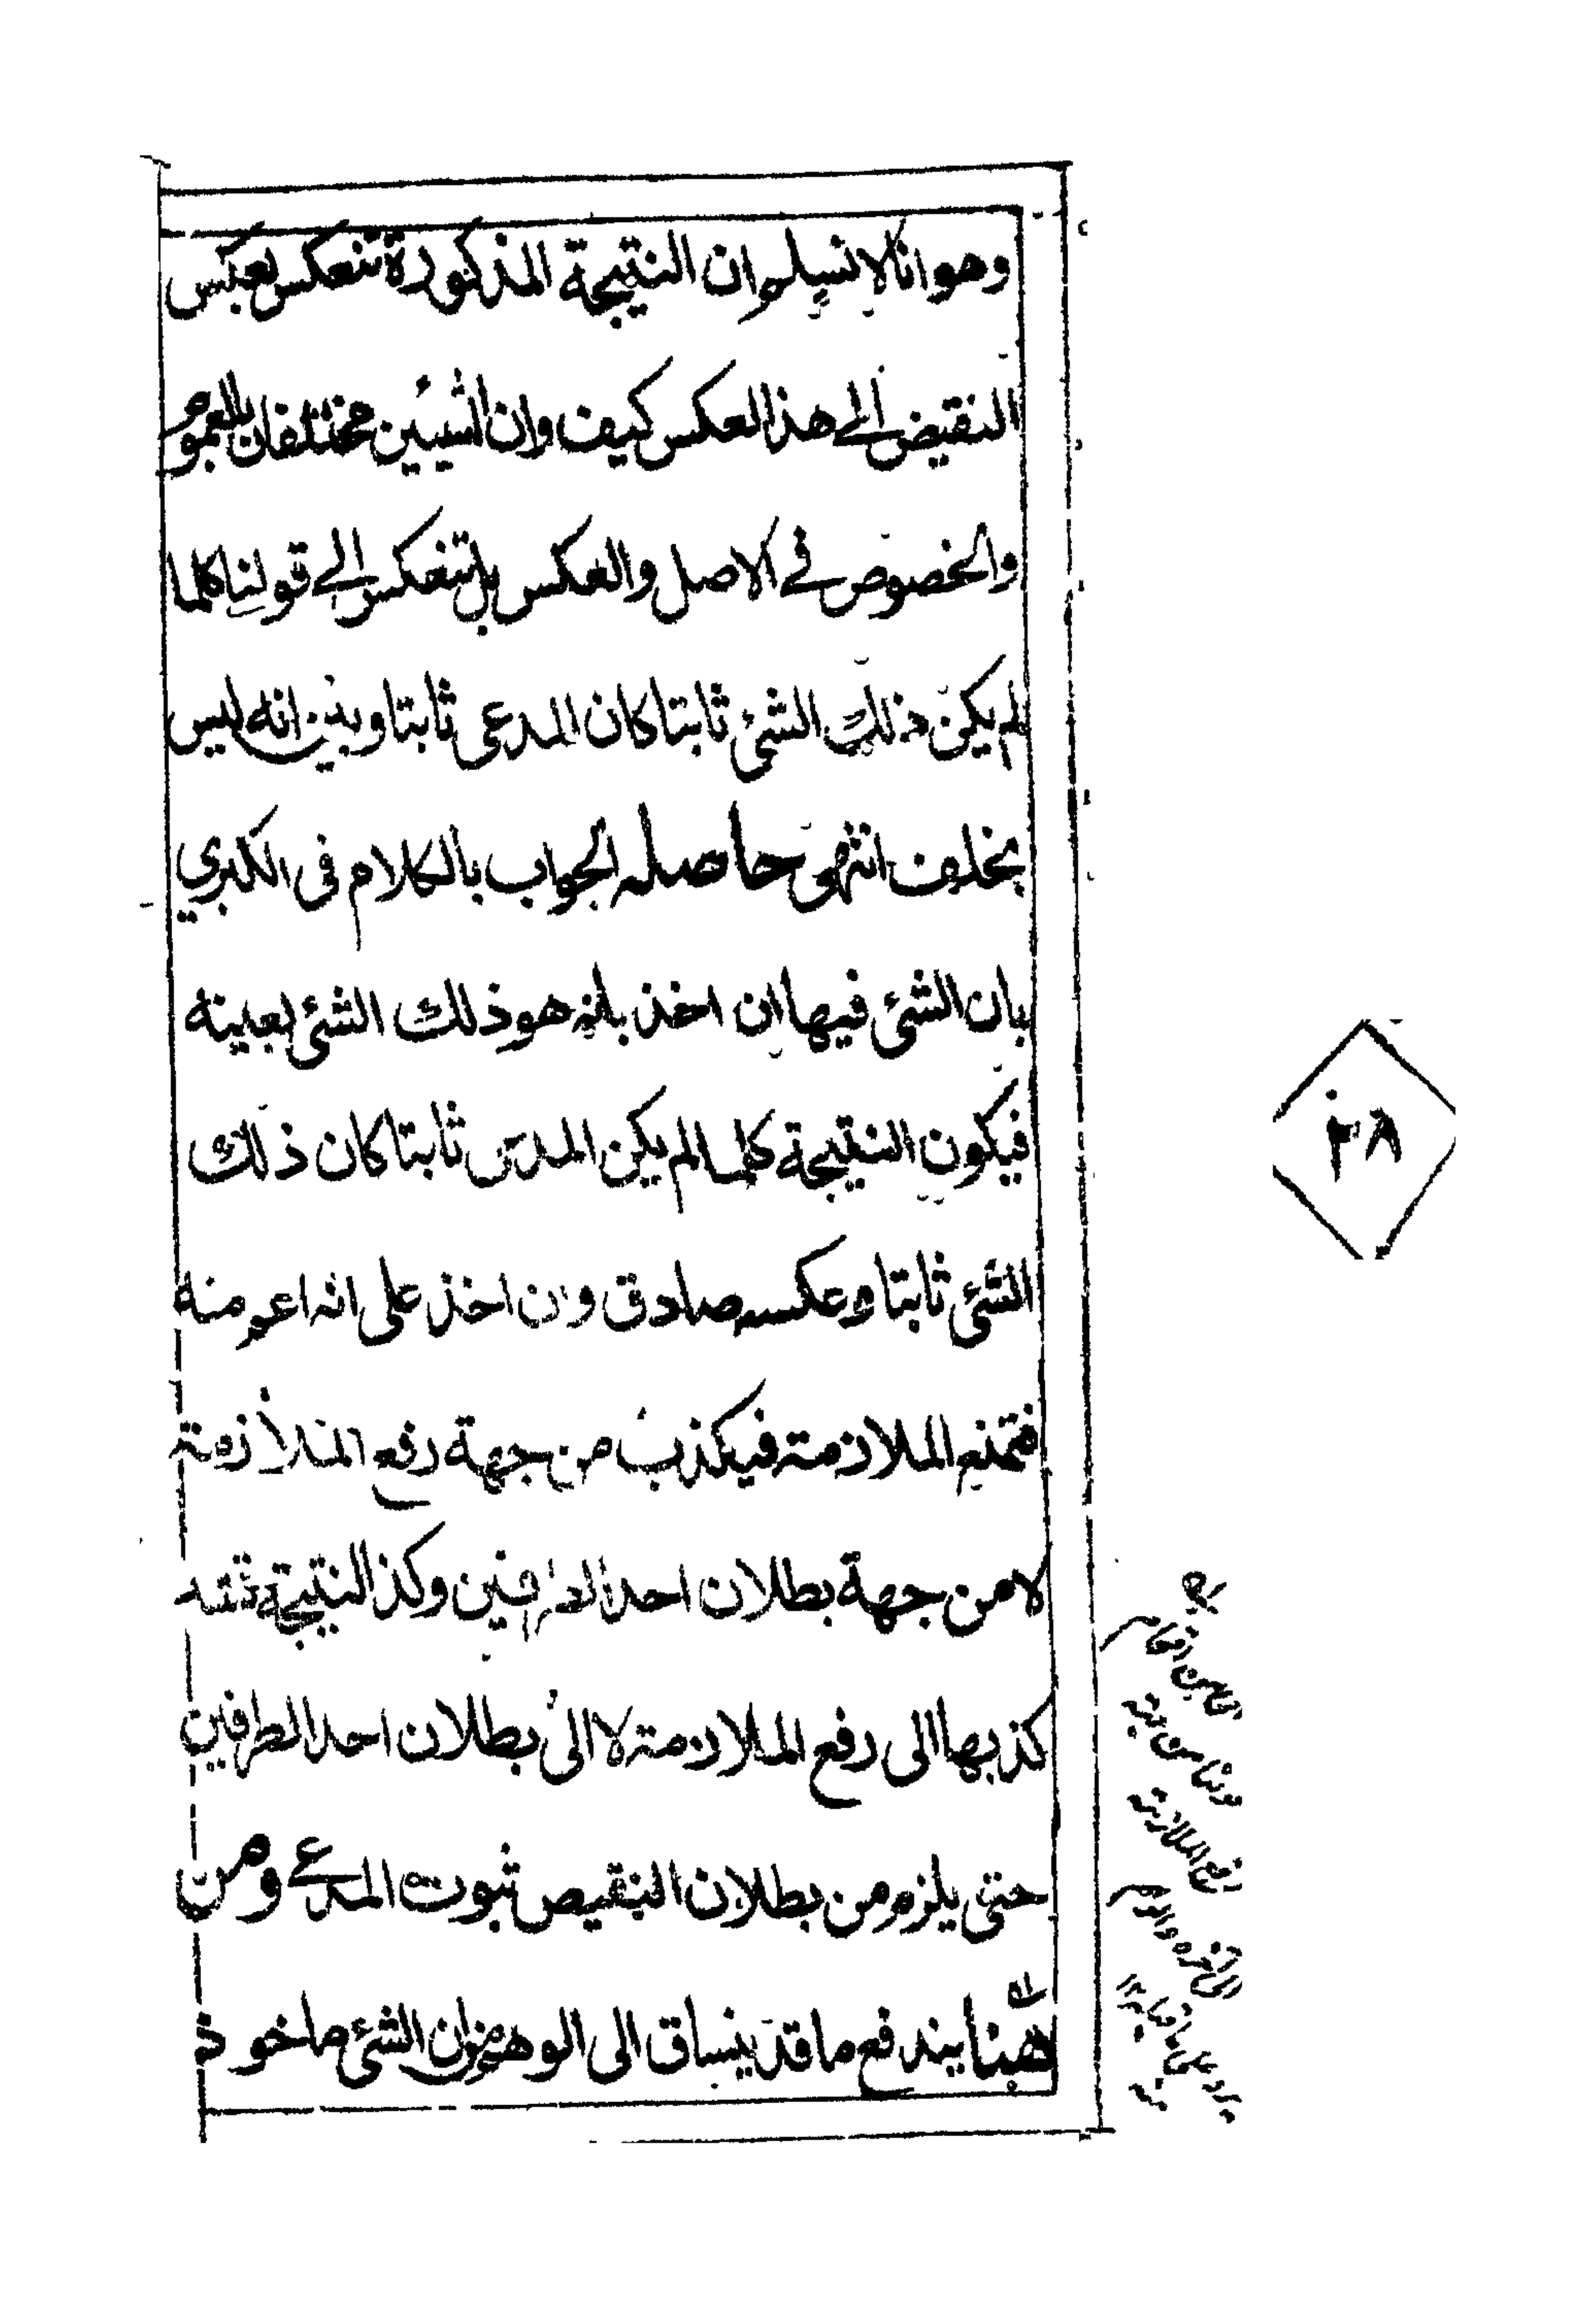 وهو انا لا نسلم ان النتيجة المذكورة تنعكس بعكس
النقيض الى هذا العكس كيف وان الشيئين مختلفان بالعموم
والخصوص في الاصل والعكس بل تنعكس الى قولنا كلما
لم يكن ذلك الشئ ثابتا كان المدعى ثابتا وبين انه ليس
بخلف انتهى حاصله الجواب بالكلام فى الكبري
بان الشئ فيها ان اخذ بانه هو ذلك الشئ بعينه
فيكون النتيجة كلما لم يكن المدعى ثابتا كان ذلك
الشئ ثابتا وعكسه صادق وان اخذ على انه اعم منه
فتمنع الملازمة فيكذب من جهة رفع الملازمة
لا من جهة بطلان احد الطرفين وكذا النتيجة
كذبها الى رفع الملازمة لا الى بطلان احد الطرفين
حتى يلزم من بطلان النقيض ثبوت المدعى ومن
ههنا يندفع ما قد ينساق الى الوهم من ان الشئ ماخوذ
رفع الملازمة